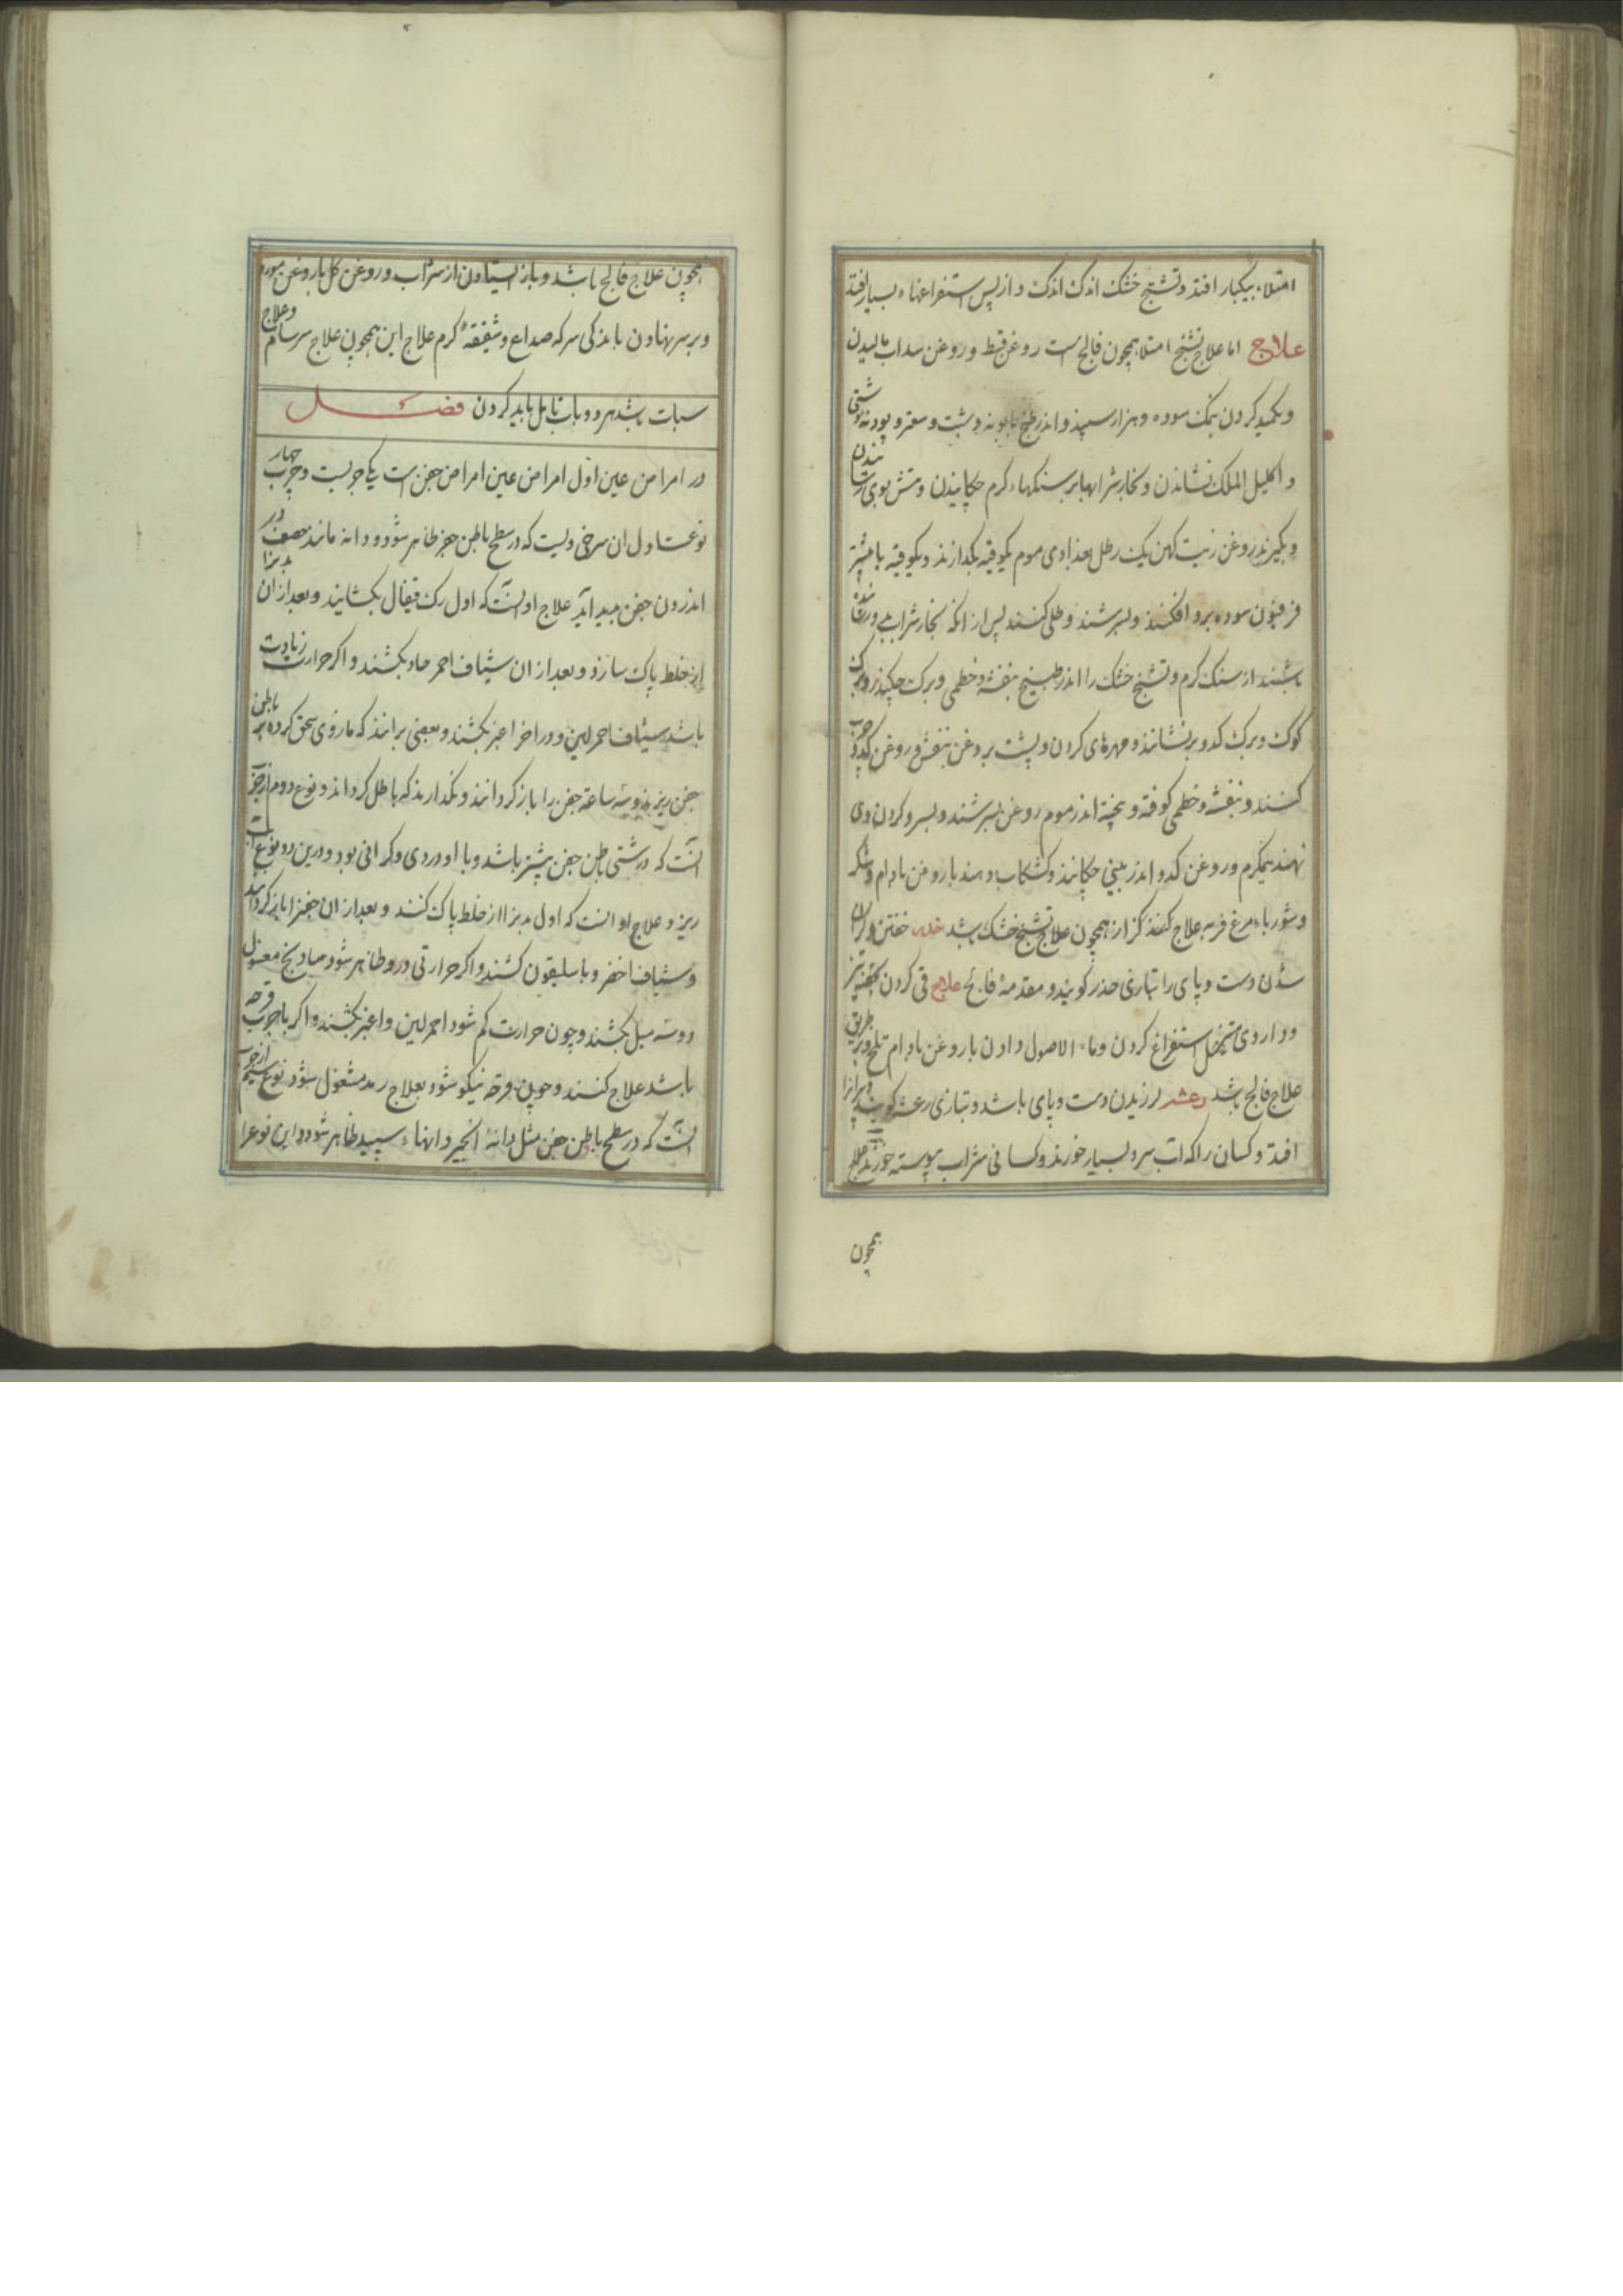 امتلاء بیکبار افتد و تشنج خشک اندک اندک و از پس استفراغهاء بسیار افتد
علاج اما علاج تشنج امتلا همچون فالج است روغن قسط و روغن سداب مالیدن
و تکمید کردن بنمک سوده و هزار سپند و اندر طبیخ بابونه و شبت و سعتر و پودنه دشتی
و اکلیل الملک نشاندن و بخار شرابها بر سنکهاء کرم چکانیدن
و بکیرند روغن زیت کهن یک رطل بغدادی موم یکوقیه بکدازند و یکوقیه
فرفیون سوده برو افکنند و بسرشند و طلی کنند پس از انکه بخار شراب
باشند از سنک کرم و تشنج خشک را اندر طبیخ بنفشه و خطمی و برک
کوک و برک کدو برنشانند و مهرهای کردن و پشت بروغن بنفش و روغن کدو چرب
کنند و بنفشه و خطمی کوفته و بیخته اندر موم روغن بسرشند و بسر و کردن وی
نهند نیمکرم و روغن کدو اندر بینی چکانند و کشکاب دهند با روغن بادام و شکر
و شورباء مرغ فربه علاج کزاز همچون علاج تشنج خشک باشد خدر خفتن و کران
شدن دست و پای را بتازی خدر کویند و مقدمهٔ فالج علاج قی کردن بحقنه تیز
و داروی مسهل استفراغ کردن و ماء الاصول دادن با روغن بادام تلخ و بر طریق
علاج فالج باشد رعشه لرزیدن دست و پای باشد و بتازی رعشه کویند و پیرانرا
افتد و کسان را که اب سرد بسیار خورند و کسانی شراب پیوسته خورند علاج
همچون
همچون علاج فالج باشد و باز ایستادن از شراب و روغن کل با روغن مورد
و بر سر نهادن با اندکی سرکه صداع و شقیقهٔ کرم علاج این همچون علاج سرسام و علاج
سبات باشد بهر دو باب تامل باید کردن فصل
در امراض عین اول امراض عین امراض جفن است یکی جربست و جرب چهار
نوعست اول ان سرخی ولیست که در سطح باطن جفن ظاهر شود و دانه مانند حصف در
اندرون جفن پدید آید علاج او انست که اول رک قیفال بکشایند و بعد از ان بدنرا
از خلط پاک سازند و بعد از ان شیاف احمر حاد بکشند و اکر حرارت زیادت
باشد شیاف احمر لین و در اخر اغبر بکشند و بعضی برانند که مازوی سحق کرده بر باطن
جفن ریزند و سه ساعة جفن را باز کردانند و نکدارند که باطل کرداند و نوع دوم از جرب
انست که درشتی باطن جفن بیشتر باشد و با او دردی و کرانی بود و درین دو نوع آب
ریزد و علاج او انست که اول بدنرا از خلط پاک کنند و بعد از ان جفنرا باز کردانند
و شیاف اخضر و باسلیقون کشند و اکر حرارتی درو ظاهر شود شادنج مغسول
دو سه میل بکشند و چون حرارت کم شود احمر لین و اغبر بکشند و اکر با جرب قرحه
باشد علاج کنند و چون قرحه نیکو شود بعلاج رمد مشغول شود نوع سیم از جرب
انست که در سطح باطن جفن مثل دانهٔ انجیر دانهاء سپید ظاهر شود و این نوعرا